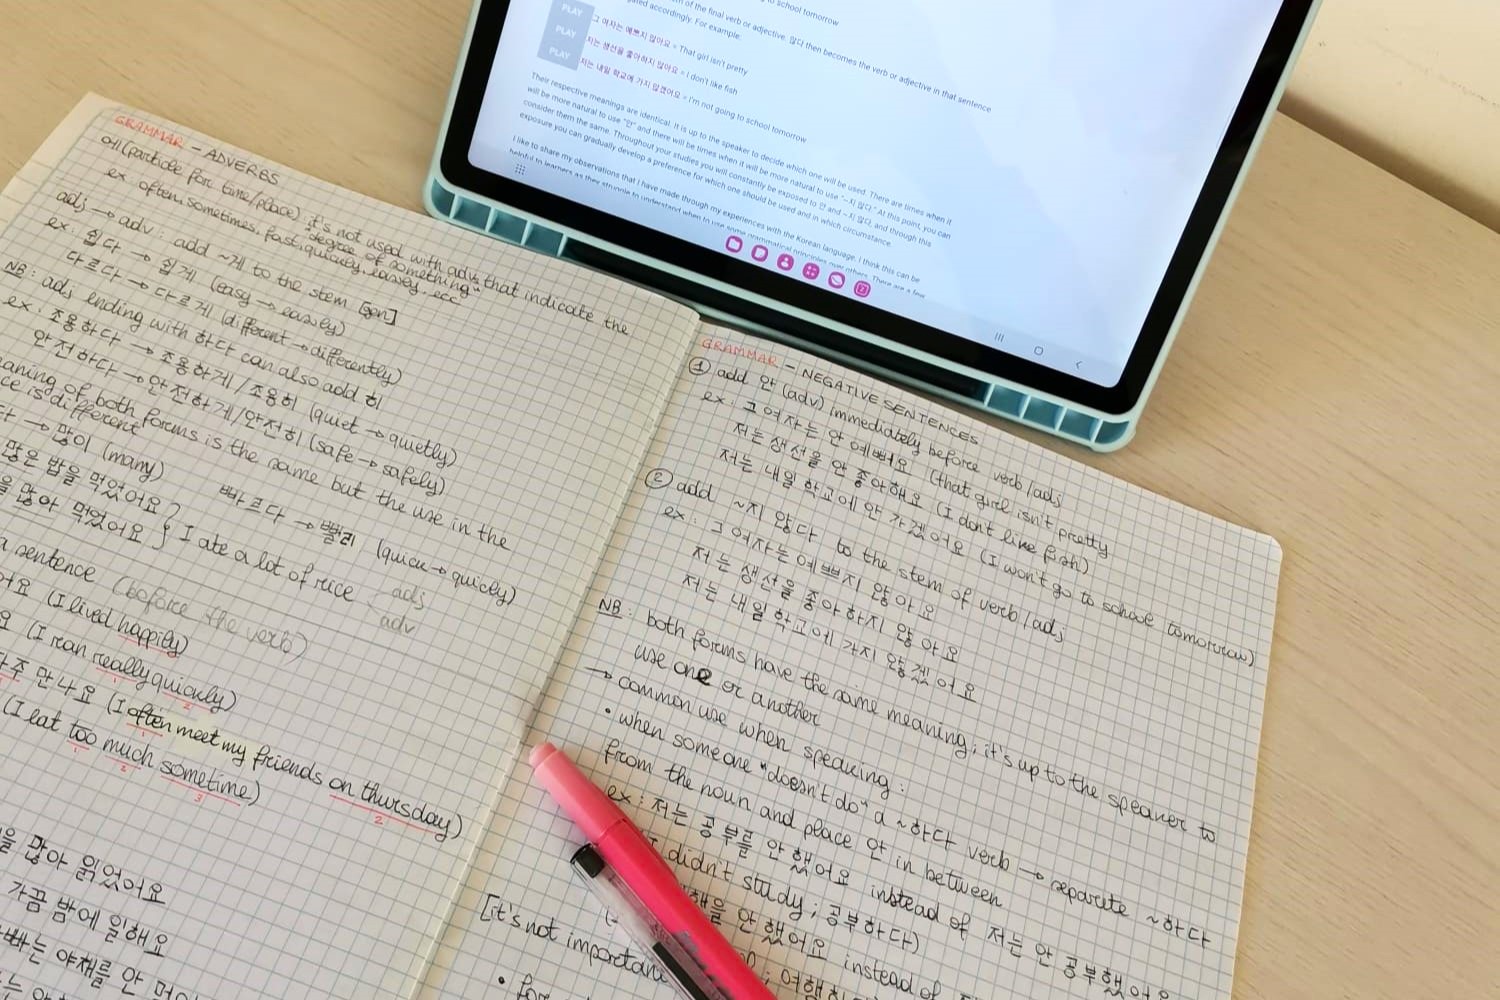 to school tomorrow
of the final verb or adjective. 않다 then becomes the verb or adjective in that sentence
accordingly. For example:
PLAY
그 여자는 예쁘지 않아요 = That girl isn't pretty
PLAY
저는 생선을 좋아하지 않아요 = I don't like fish
PLAY
저는 내일 학교에 가지 않겠어요 = I'm not going to school tomorrow
Their respective meanings are identical. It is up to the speaker to decide which one will be used. There are times when it
will be more natural to use "안" and there will be times when it will be more natural to use "~지 않다." At this point, you can
consider them the same. Throughout your studies you will constantly be exposed to 안 and ~지 않다, and through this
exposure you can gradually develop a preference for which one should be used and in which circumstance.
I like to share my observations that I have made through my experiences with the Korean language. I think this can be
helpful to learners as they struggle to understand when to use some grammatical principles over others. There are a few
GRAMMAR - ADVERBS
에 (particle for time/place) it's not used with adv. that indicate the
"degree of something"
ex. often, sometimes, fast, quickly, easley, ecc
adj → adv : add ~게 to the stem [gen]
ex: 쉽다 → 쉽게 (easy → easily)
다르다 → 다르게 (different → differently)
NB: adj ending with 하다 can also add 히
ex: 조용하다 → 조용하게/조용히 (quiet → quietly)
안전하다 → 안전하게/안전히 (safe → safely)
of both forms is the same but the use in the
is different
→ 많이 (many)
빠르다 → 빨리 (quick → quickly)
많은 밥을 먹었어요
많아 먹었어요 } I ate a lot of rice
adj
adv
a sentence (before the verb)
(I lived happily)
(I ran really quickly)
1 2
자주 만나요 (I often meet my friends on thursday)
1 2
(I eat too much sometime)
1 2 3
많아 읽었어요
가끔 밤에 일해요
야채를 안
GRAMMAR - NEGATIVE SENTENCES
① add 안 (adv) immediately before verb/adj
ex: 그 여자는 안 예뻐요 (that girl isn't pretty
저는 생선을 안 좋아해요 (I don't like fish)
저는 내일 학교에 안 가겠어요 (I won't go to school tomorrow)
② add ~지 않다 to the stem of verb/adj
ex: 그 여자는 예쁘지 않아요
저는 생선을 좋아하지 않아요
저는 내일 학교에 가지 않겠어요
NB: both forms have the same meaning; it's up to the speaker to
use one or another
→ common use when speaking:
• when someone "doesn't do" a ~하다 verb → separate ~하다
from the noun and place 안 in between
ex: 저는 공부를 안 했어요 instead of 저는 안 공부했어요
I didn't study; 공부하다)
안 했어요 instead of
[it's not important
• for